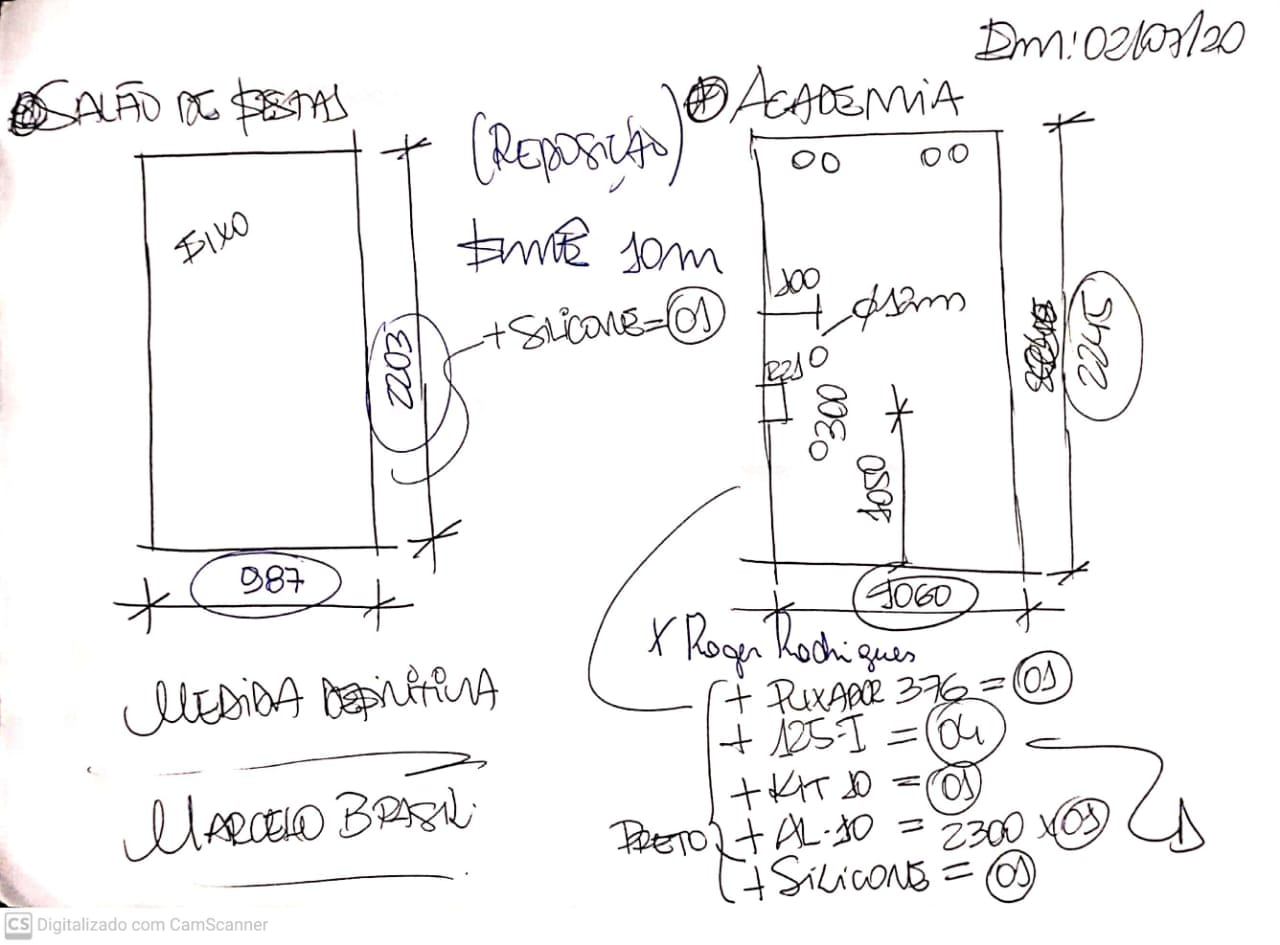 Em: 02/07/20
SALÃO DE FESTAS
FIXO
2203
987
(REPOSIÇÃO)
10m
+ SILICONE = 01
MEDIDA DEFINITIVA
MARCELO BRASIL
ACADEMIA
100
Ø12mm
300
1050
2245
1060
X Roger Rodrigues
+ PUXADOR 376 = 01
+ 125-I = 04
+ KIT 10 = 01
PRETO
+ AL-10 = 2300 x 01
+ SILICONE = 01
CS Digitalizado com CamScanner